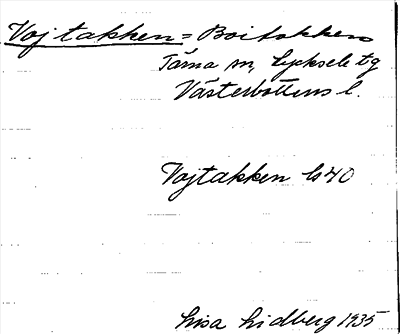 Vojtakken = Boitakken
Tärna sn, Lycksele tg
Västerbottens l.
Vojtakken bs 40
Lisa Lidberg 1935